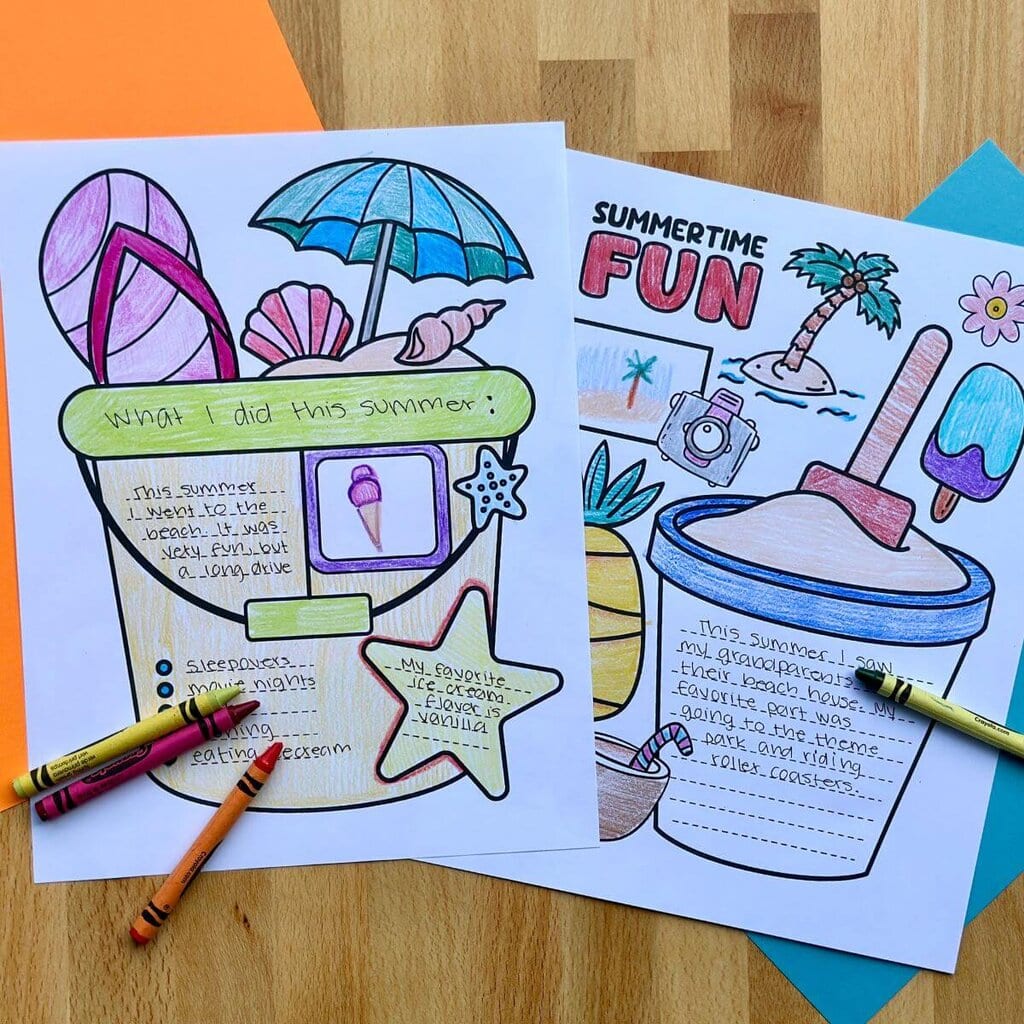 What I did this summer:
This summer
I went to the
beach. It was
very fun, but
a long drive
sleepovers
movie nights
eating icecream
My favorite
ice cream
flavor is
vanilla
SUMMERTIME
FUN
This summer I saw
my grandparents
their beach house. My
favorite part was
going to the theme
park and riding
roller coasters.
Crayola.com